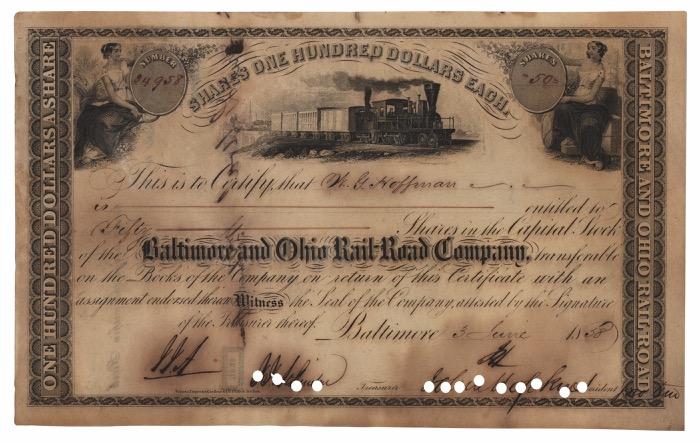 NUMBER
24958
SHARES ONE HUNDRED DOLLARS EACH.
SHARES
50
ONE HUNDRED DOLLARS A SHARE
BALTIMORE AND OHIO RAIL-ROAD
This is to Certify, that W. G. Hoffman
is entitled to
Fifty Shares in the Capital Stock
of the Baltimore and Ohio Rail-Road Company, transferable
on the Books of the Company on return of this Certificate with an
assignment endorsed thereon Witness the Seal of the Company, attested by the Signature
of the Treasurer thereof. Baltimore 3 June 1858
Treasurer President